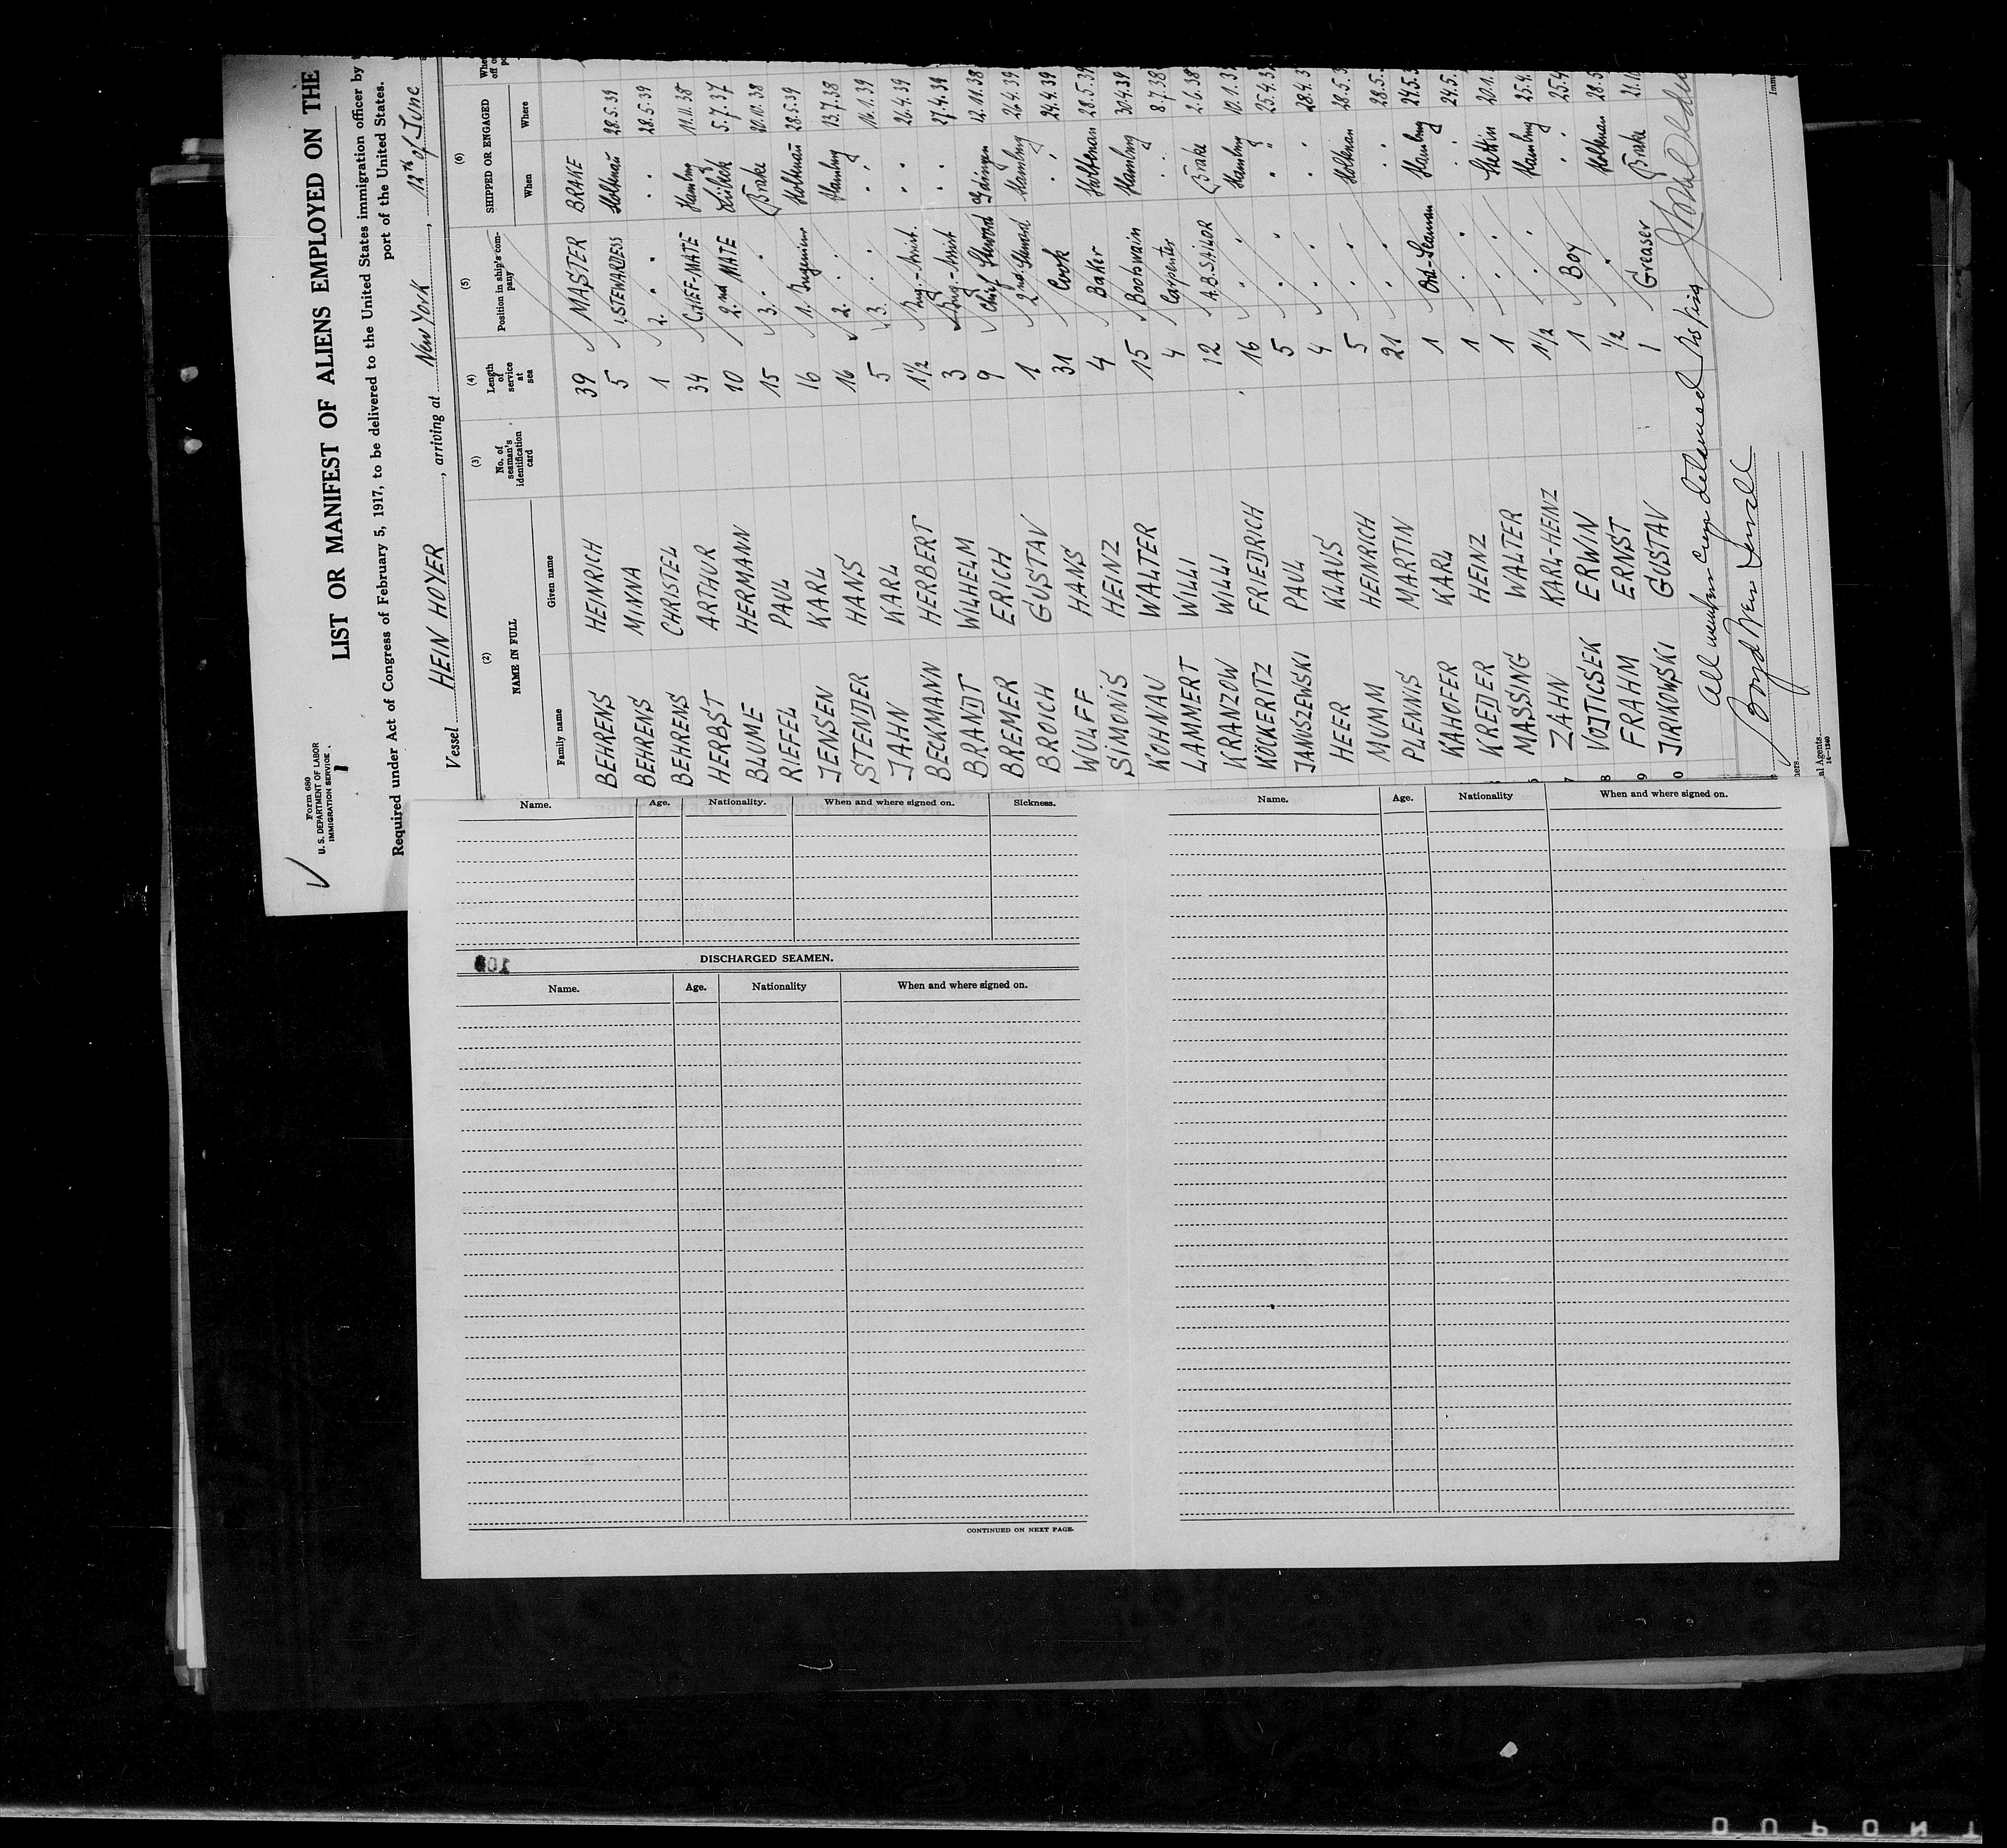 Form 680
U. S. DEPARTMENT OF LABOR
IMMIGRATION SERVICE
1
LIST OR MANIFEST OF ALIENS EMPLOYED ON THE
Required under Act of Congress of February 5, 1917, to be delivered to the United States immigration officer by
port of the United States.
Vessel HEIN HOYER, arriving at New York, 12th of June
(2) (3) (4) (5) (6)
NAME IN FULL No. of seaman's identification card Length of service at sea Position in ship's company SHIPPED OR ENGAGED
Family name Given name When Where
BEHRENS HEINRICH 39 MASTER BRAKE
BEHRENS MINNA 5 1. STEWARDESS Holtenau 28.5.39
BEHRENS CHRISTEL 1 2. " " " 28.5.39
HERBST ARTHUR 34 CHIEF-MATE Hamburg 11.11.38
BLUME HERMANN 10 2.nd MATE Lübeck 5.7.37
RIEFEL PAUL 15 3. " Brake 20.10.38
JENSEN KARL 16 1. Ingenieur Holtenau 28.5.39
STENDER HANS 16 2. " Hamburg 13.7.38
JAHN KARL 5 3. " " " 16.1.39
BECKMANN HERBERT 1½ Ing.-Assist. " " 26.4.39
BRANDT WILHELM 3 Ing.-Assist " " 27.4.39
BREMER ERICH 9 Chief Steward Gdingen 12.11.38
BROICH GUSTAV 1 2nd. Steward Hamburg 26.4.39
WULFF HANS 31 Cook " " 24.4.39
SIMONIS HEINZ 4 Baker Holtenau 28.5.39
KOHNAU WALTER 15 Bootswain Hamburg 30.4.39
LAMMERT WILLI 4 Carpenter " " 8.7.38
KRANZOW WILLI 12 A.B. SAILOR Brake 2.6.38
KÖCKERITZ FRIEDRICH 16 " Hamburg 10.1.3
JANUSZEWSKI PAUL 5 " " 25.4.3
HEER KLAUS 4 " " 28.4.3
MUMM HEINRICH 5 " Holtenau 28.5.3
PLENNIS MARTIN 21 " " " 28.5.
KAHOFER KARL 1 Ord-Seaman Hamburg 24.5.3
KREDLER HEINZ 1 " " " 24.5.
MASSING WALTER 1 " Stettin 20.1.
ZAHN KARL-HEINZ 1½ " Hamburg 25.4.
VOJTICSEK ERWIN 1 Boy " " 25.4
FRAHM ERNST ½ " Holtenau 28.5
JIRIKOWSKI GUSTAV 1 Greaser Brake 21.1
All members crew detained
Name. Age. Nationality. When and where signed on. Sickness.
DISCHARGED SEAMEN.
Name. Age. Nationality When and where signed on.
CONTINUED ON NEXT PAGE.
Name. Age. Nationality When and where signed on.